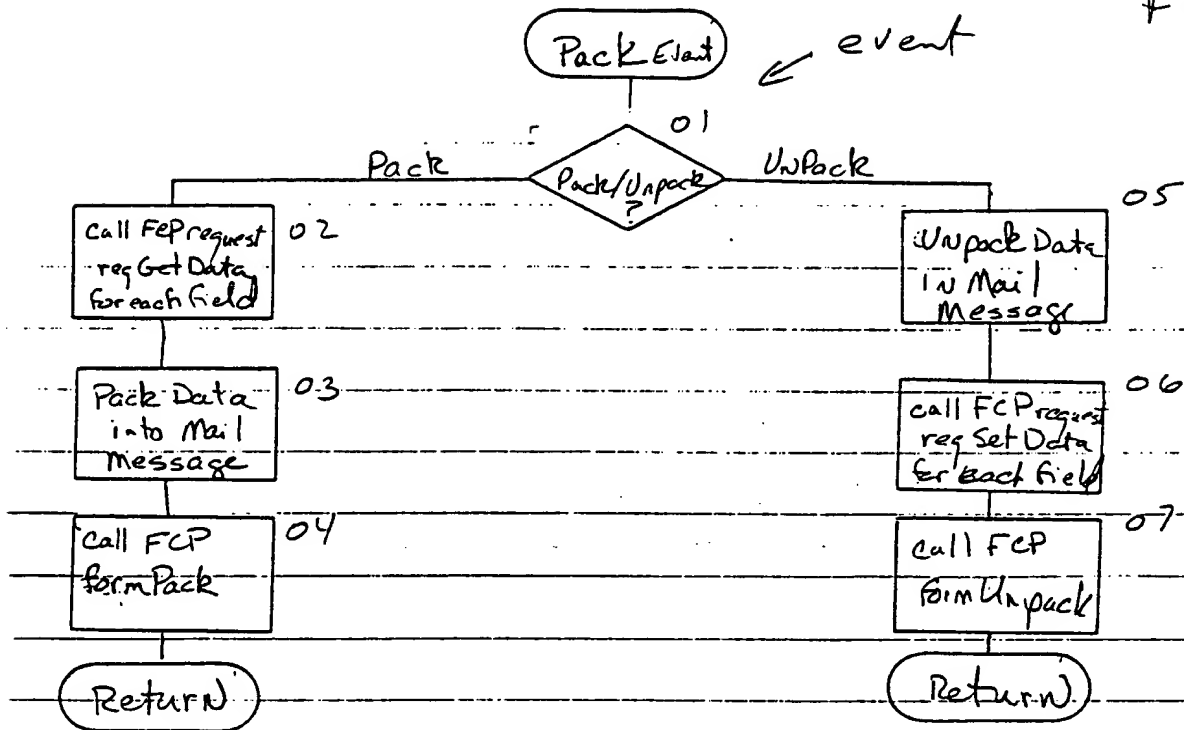 Pack Event
event
01
Pack
Pack/Unpack
?
UnPack
02
call FCP request
req Get Data
for each field
03
Pack Data
into Mail
Message
04
call FCP
formPack
Return
05
Unpack Data
in Mail
Message
06
call FCP request
req Set Data
for each field
07
call FCP
formUnpack
Return